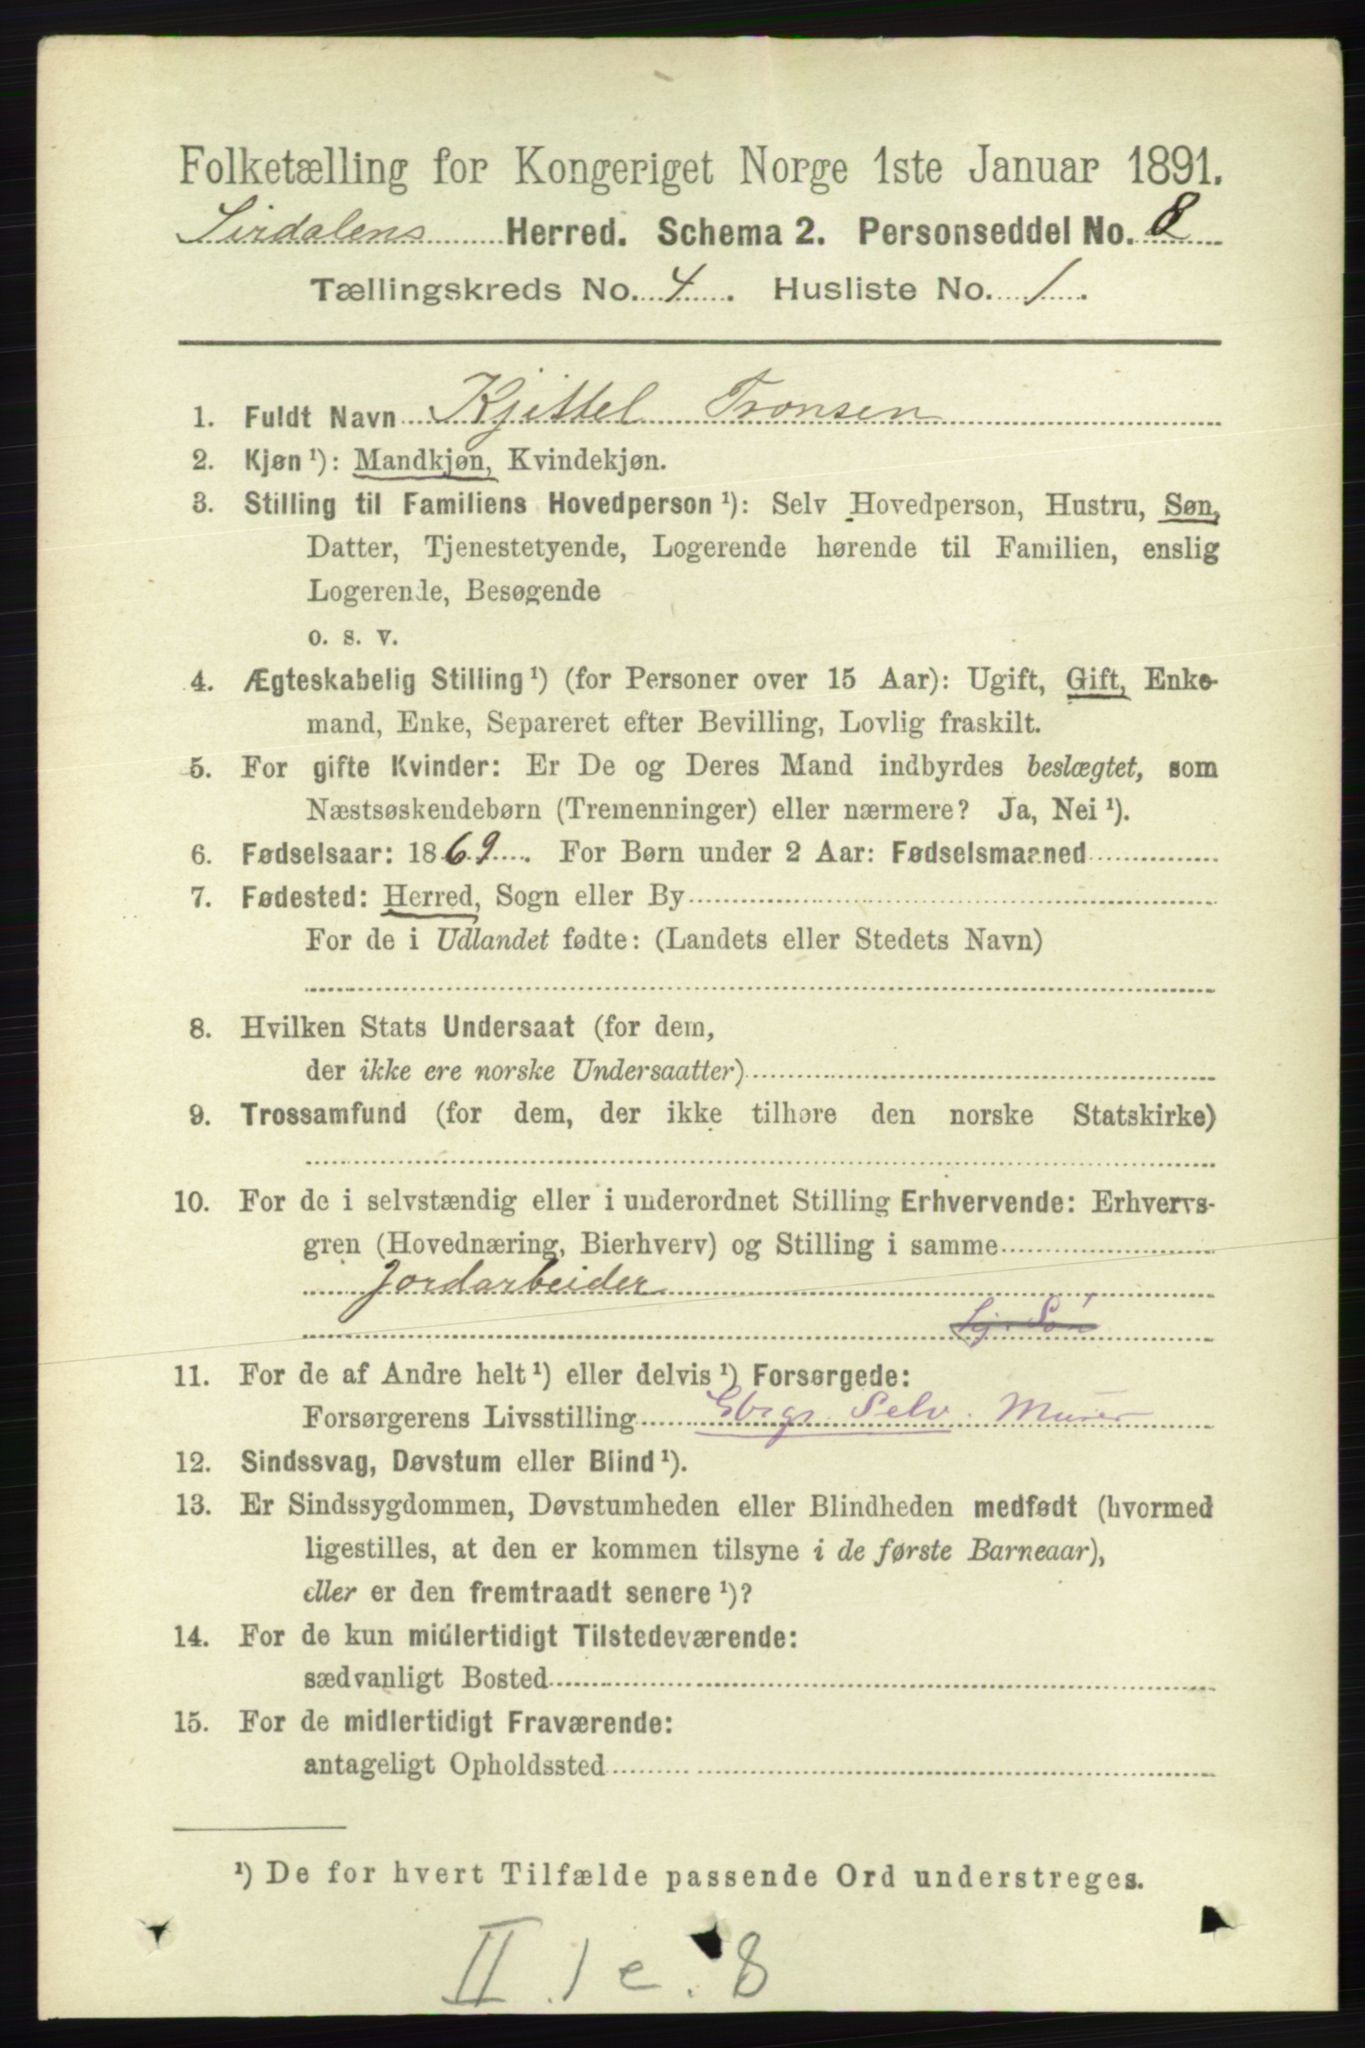 Folketælling for Kongeriget Norge 1ste Januar 1891.
Sirdalens Herred. Schema 2. Personseddel No. 8
Tællingskreds No. 4. Husliste No. 1.
1. Fuldt Navn Kjittel Tronsen
2. Kjøn ¹): Mandkjøn, Kvindekjøn.
3. Stilling til Familiens Hovedperson ¹): Selv Hovedperson, Hustru, Søn,
Datter, Tjenestetyende, Logerende hørende til Familien, enslig
Logerende, Besøgende
o. s. v.
4. Ægteskabelig Stilling ¹) (for Personer over 15 Aar): Ugift, Gift, Enke-
mand, Enke, Separeret efter Bevilling, Lovlig fraskilt.
5. For gifte Kvinder: Er De og Deres Mand indbyrdes beslægtet, som
Næstsøskendebørn (Tremenninger) eller nærmere? Ja, Nei ¹).
6. Fødselsaar: 1869. For Børn under 2 Aar: Fødselsmaaned
7. Fødested: Herred, Sogn eller By
For de i Udlandet fødte: (Landets eller Stedets Navn)
8. Hvilken Stats Undersaat (for dem,
der ikke ere norske Undersaatter)
9. Trossamfund (for dem, der ikke tilhøre den norske Statskirke)
10. For de i selvstændig eller i underordnet Stilling Erhvervende: Erhvervs-
gren (Hovednæring, Bierhverv) og Stilling i samme
Jordarbeider
Sj. Søn
11. For de af Andre helt ¹) eller delvis ¹) Forsørgede:
Forsørgerens Livsstilling Gbrgr. Selv. Murer
12. Sindssvag, Døvstum eller Blind ¹).
13. Er Sindssygdommen, Døvstumheden eller Blindheden medfødt (hvormed
ligestilles, at den er kommen tilsyne i de første Barneaar),
eller er den fremtraadt senere ¹)?
14. For de kun midlertidigt Tilstedeværende:
sædvanligt Bosted
15. For de midlertidigt Fraværende:
antageligt Opholdssted
¹) De for hvert Tilfælde passende Ord understreges.
II. 1 e. 8